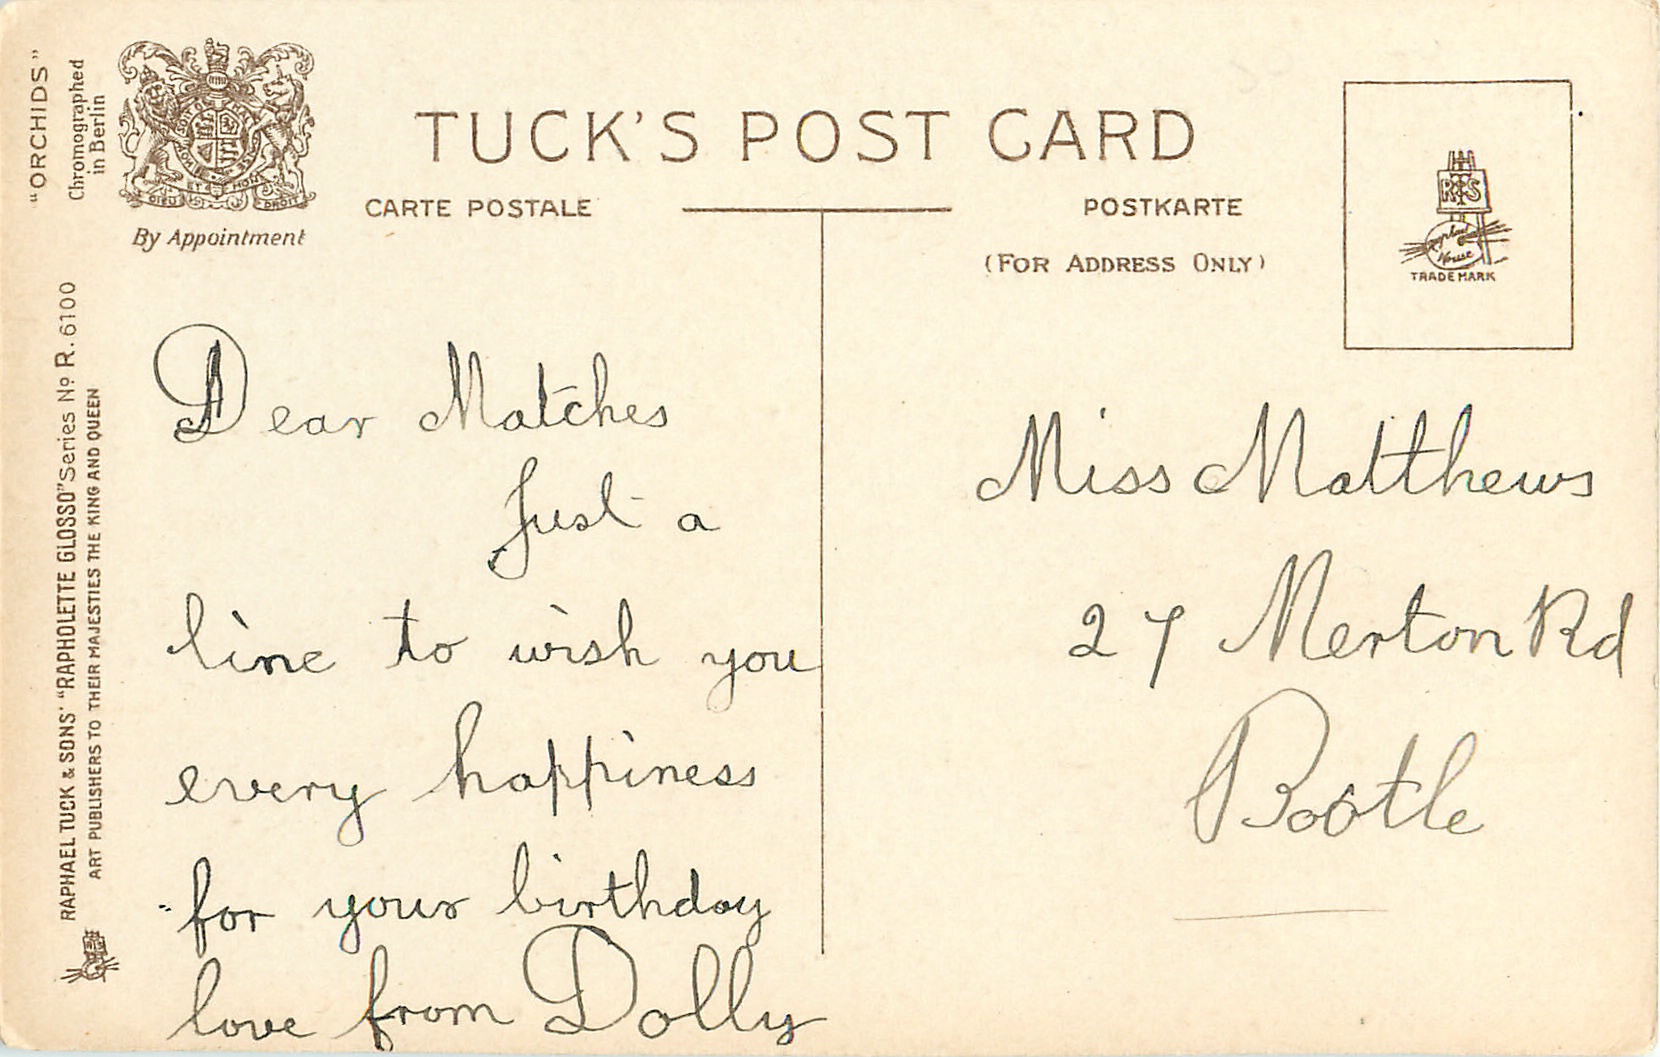 "ORCHIDS"
Chromographed
in Berlin
By Appointment
TUCK'S POST CARD
CARTE POSTALE
POSTKARTE
(FOR ADDRESS ONLY)
R T S
Raphael
House
TRADE MARK
RAPHAEL TUCK & SONS' "RAPHOLETTE GLOSSO" Series No R. 6100
ART PUBLISHERS TO THEIR MAJESTIES THE KING AND QUEEN
DIEU ET MON DROIT
Dear Matches
Just a
line to wish you
every happiness
for your birthday
love from Dolly
Miss Matthews
27 Merton Rd
Bootle